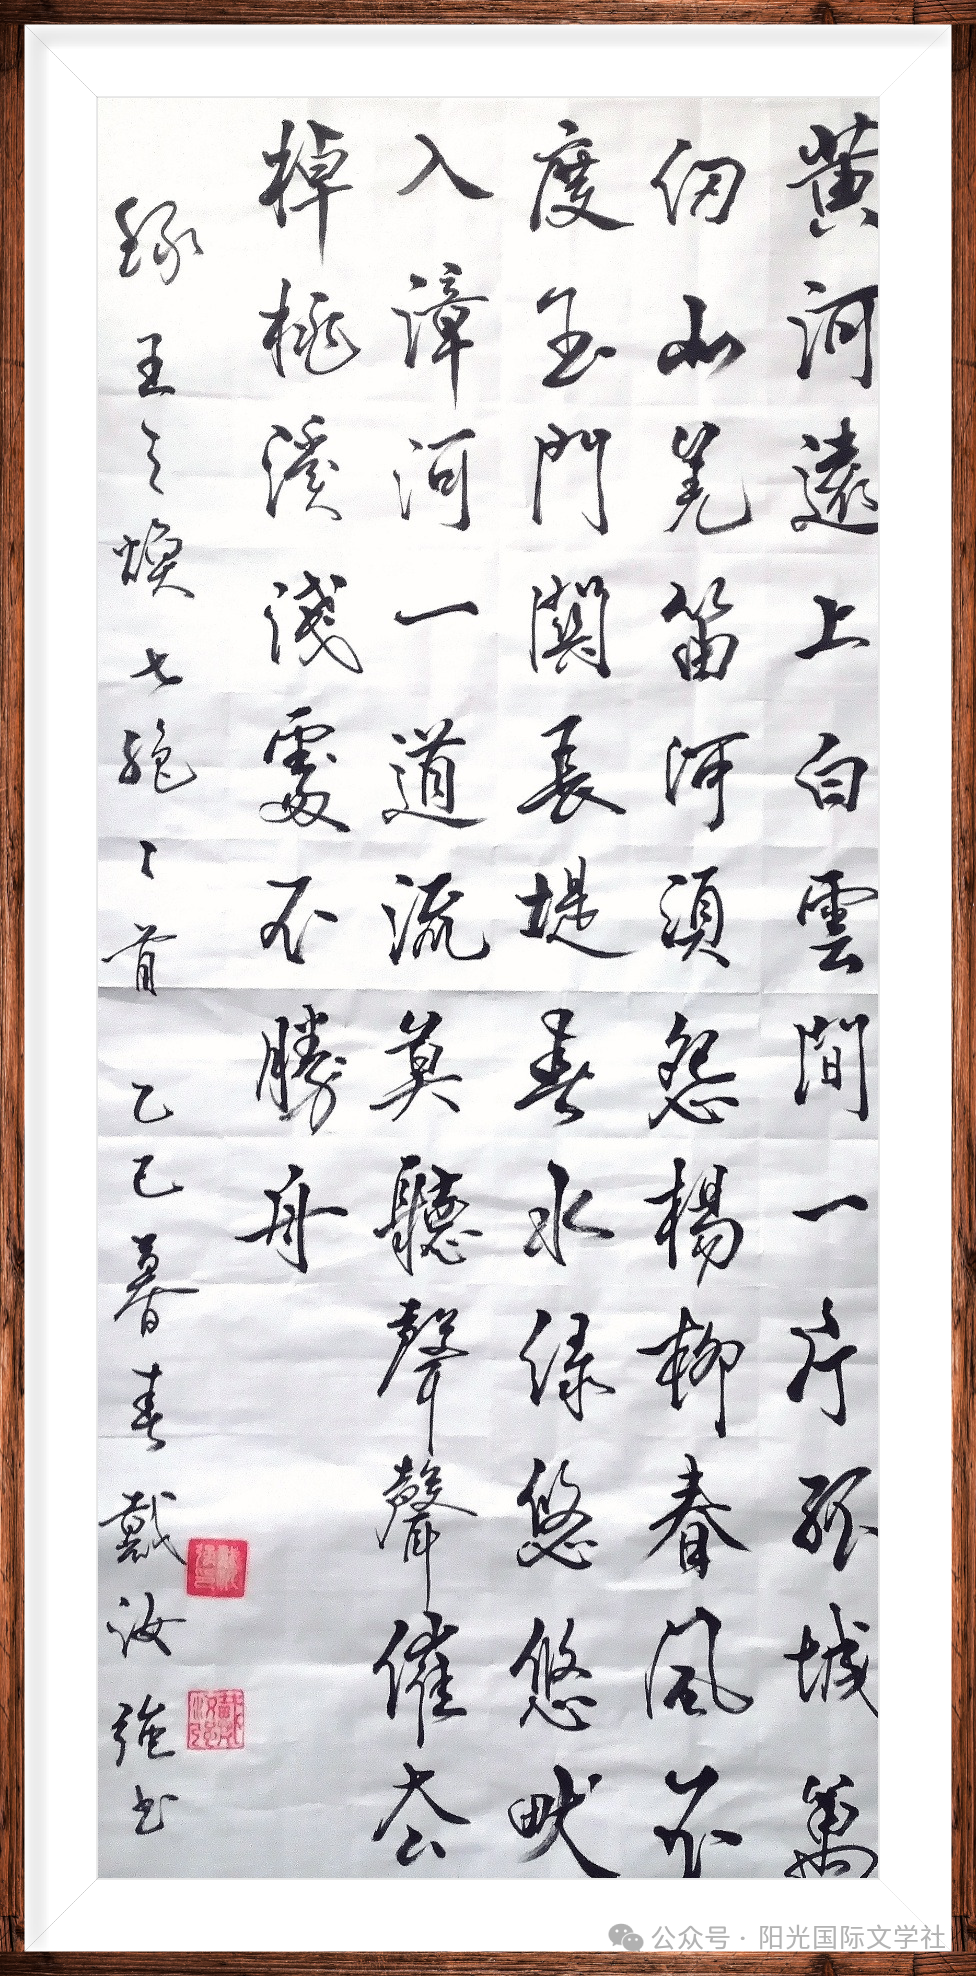 黄河遠上白雲間一片孤城萬
仞山羌笛何須怨楊柳春風不
度玉門關長堤春水綠悠悠畎
入漳河一道流莫聽聲聲催去
棹桃溪淺處不勝舟
錄王之煥七絕二首 乙巳暮春戴汝強书
公众号·阳光国际文学社